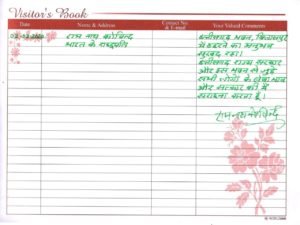 Visitor's Book
Date
Name & Address
Contact No. & E-mail
Your Valued Comments
राम नाथ कोविन्द
भारत के राष्ट्रपति
छत्तीसगढ़ भवन, बिलासपुर
में ठहरने का अनुभव
सुखद रहा।
छत्तीसगढ़ राज्य सरकार
और इस भवन से जुड़े
सभी लोगों के सेवा भाव
और सत्कार की मैं
सराहना करता हूँ।